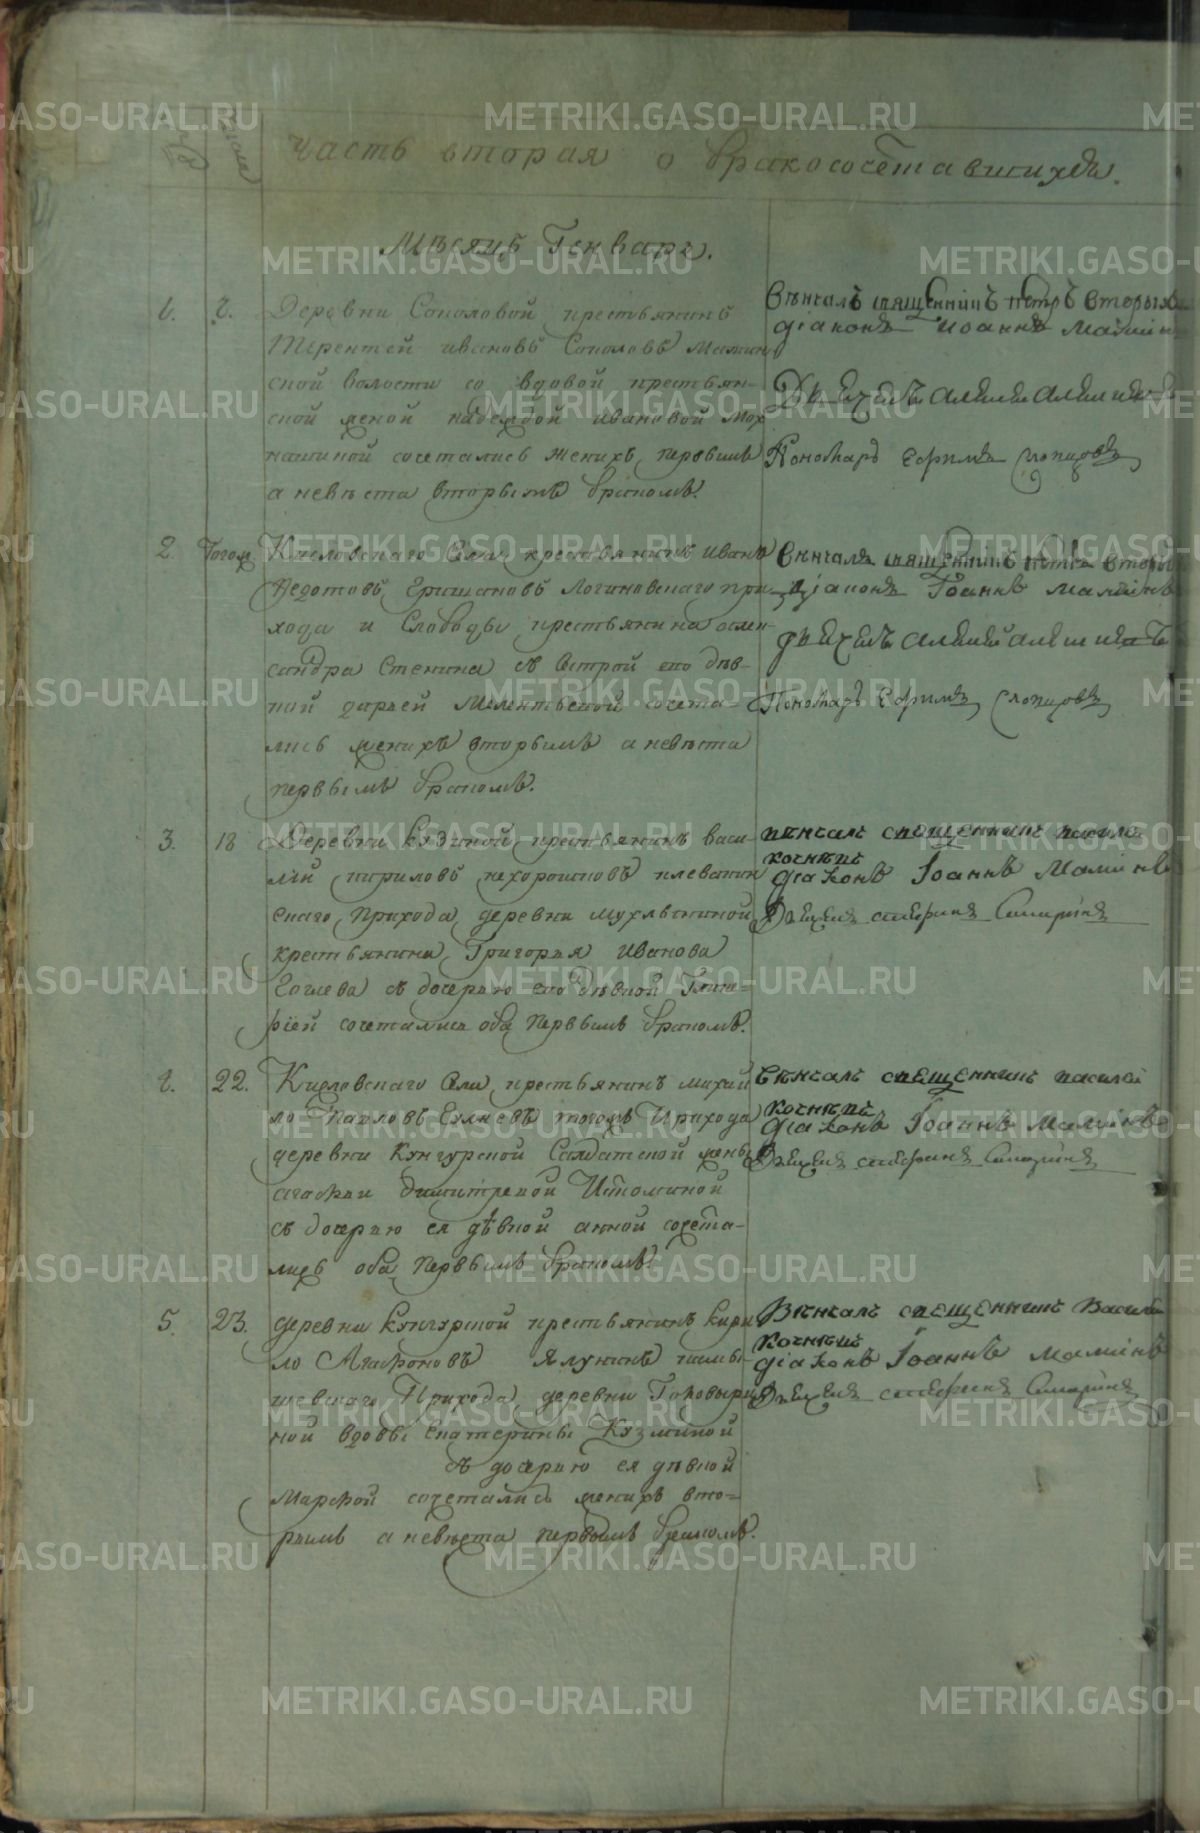 Часть вторая о бракосочетавшихся.
Месяцъ Генварь.
1. 8. Деревни Соколовой крестьянинъ
Терентей Ивановъ Соколовъ
ской волости со вдовой крестьян-
ской женой Надеждой Ивановой Мох
начиной сочетались женихъ первымъ
а невѣста вторымъ бракомъ.
Вѣнчалъ священникъ Петръ Вторыхъ
діаконъ Иоаннъ Маминъ
Дьячекъ Алексей
Пономарь Ефимъ Слопцовъ
2. Тогож Кисловскаго Села крестьянинъ Иванъ
Федотовъ Логиновскаго при-
хода и Слободы крестьянина Алек-
сандра Стенина съ сестрой его дѣв-
кой Дарьей сочета-
лись женихъ вторымъ а невѣста
первымъ бракомъ.
Вѣнчалъ священникъ Петръ Вторыхъ
діаконъ Іоаннъ Маминъ
дьячекъ Алексей
Пономарь Ефимъ Слопцовъ
3. 18 Деревни крестьянинъ Васи-
лий Кириловъ Нехорошковъ Клевакин
скаго Прихода деревни
крестьянина Григорья Иванова
съ дочерью его дѣвкой Глике-
ріей сочетались оба первымъ бракомъ.
вѣнчалъ священникъ Василей
діаконъ Іоаннъ Маминъ
Дьячекъ Стефанъ
4. 22. Кисловскаго Села крестьянинъ Михай
ло Павловъ тогожъ Прихода
деревни Кунгурской Салдатской жены
Агафьи Димитревой Истоминой
съ дочерью ея дѣвкой Анной сочета-
лись оба первымъ бракомъ.
Вѣнчалъ священникъ Василей
діаконъ Іоаннъ Маминъ
Дьячекъ Стефанъ
5. 23. деревни Кунгурской крестьянинъ Кири
ло Агафоновъ Ялунинъ Камы-
шевскаго Прихода деревни
ной вдовы Екатерины Кузминой
съ дочерью ея дѣвкой
Марфой сочетались женихъ вто-
рымъ а невѣста первымъ бракомъ.
Вѣнчалъ священникъ Василей
діаконъ Іоаннъ Маминъ
Дьячекъ Стефанъ
METRIKI.GASO-URAL.RU